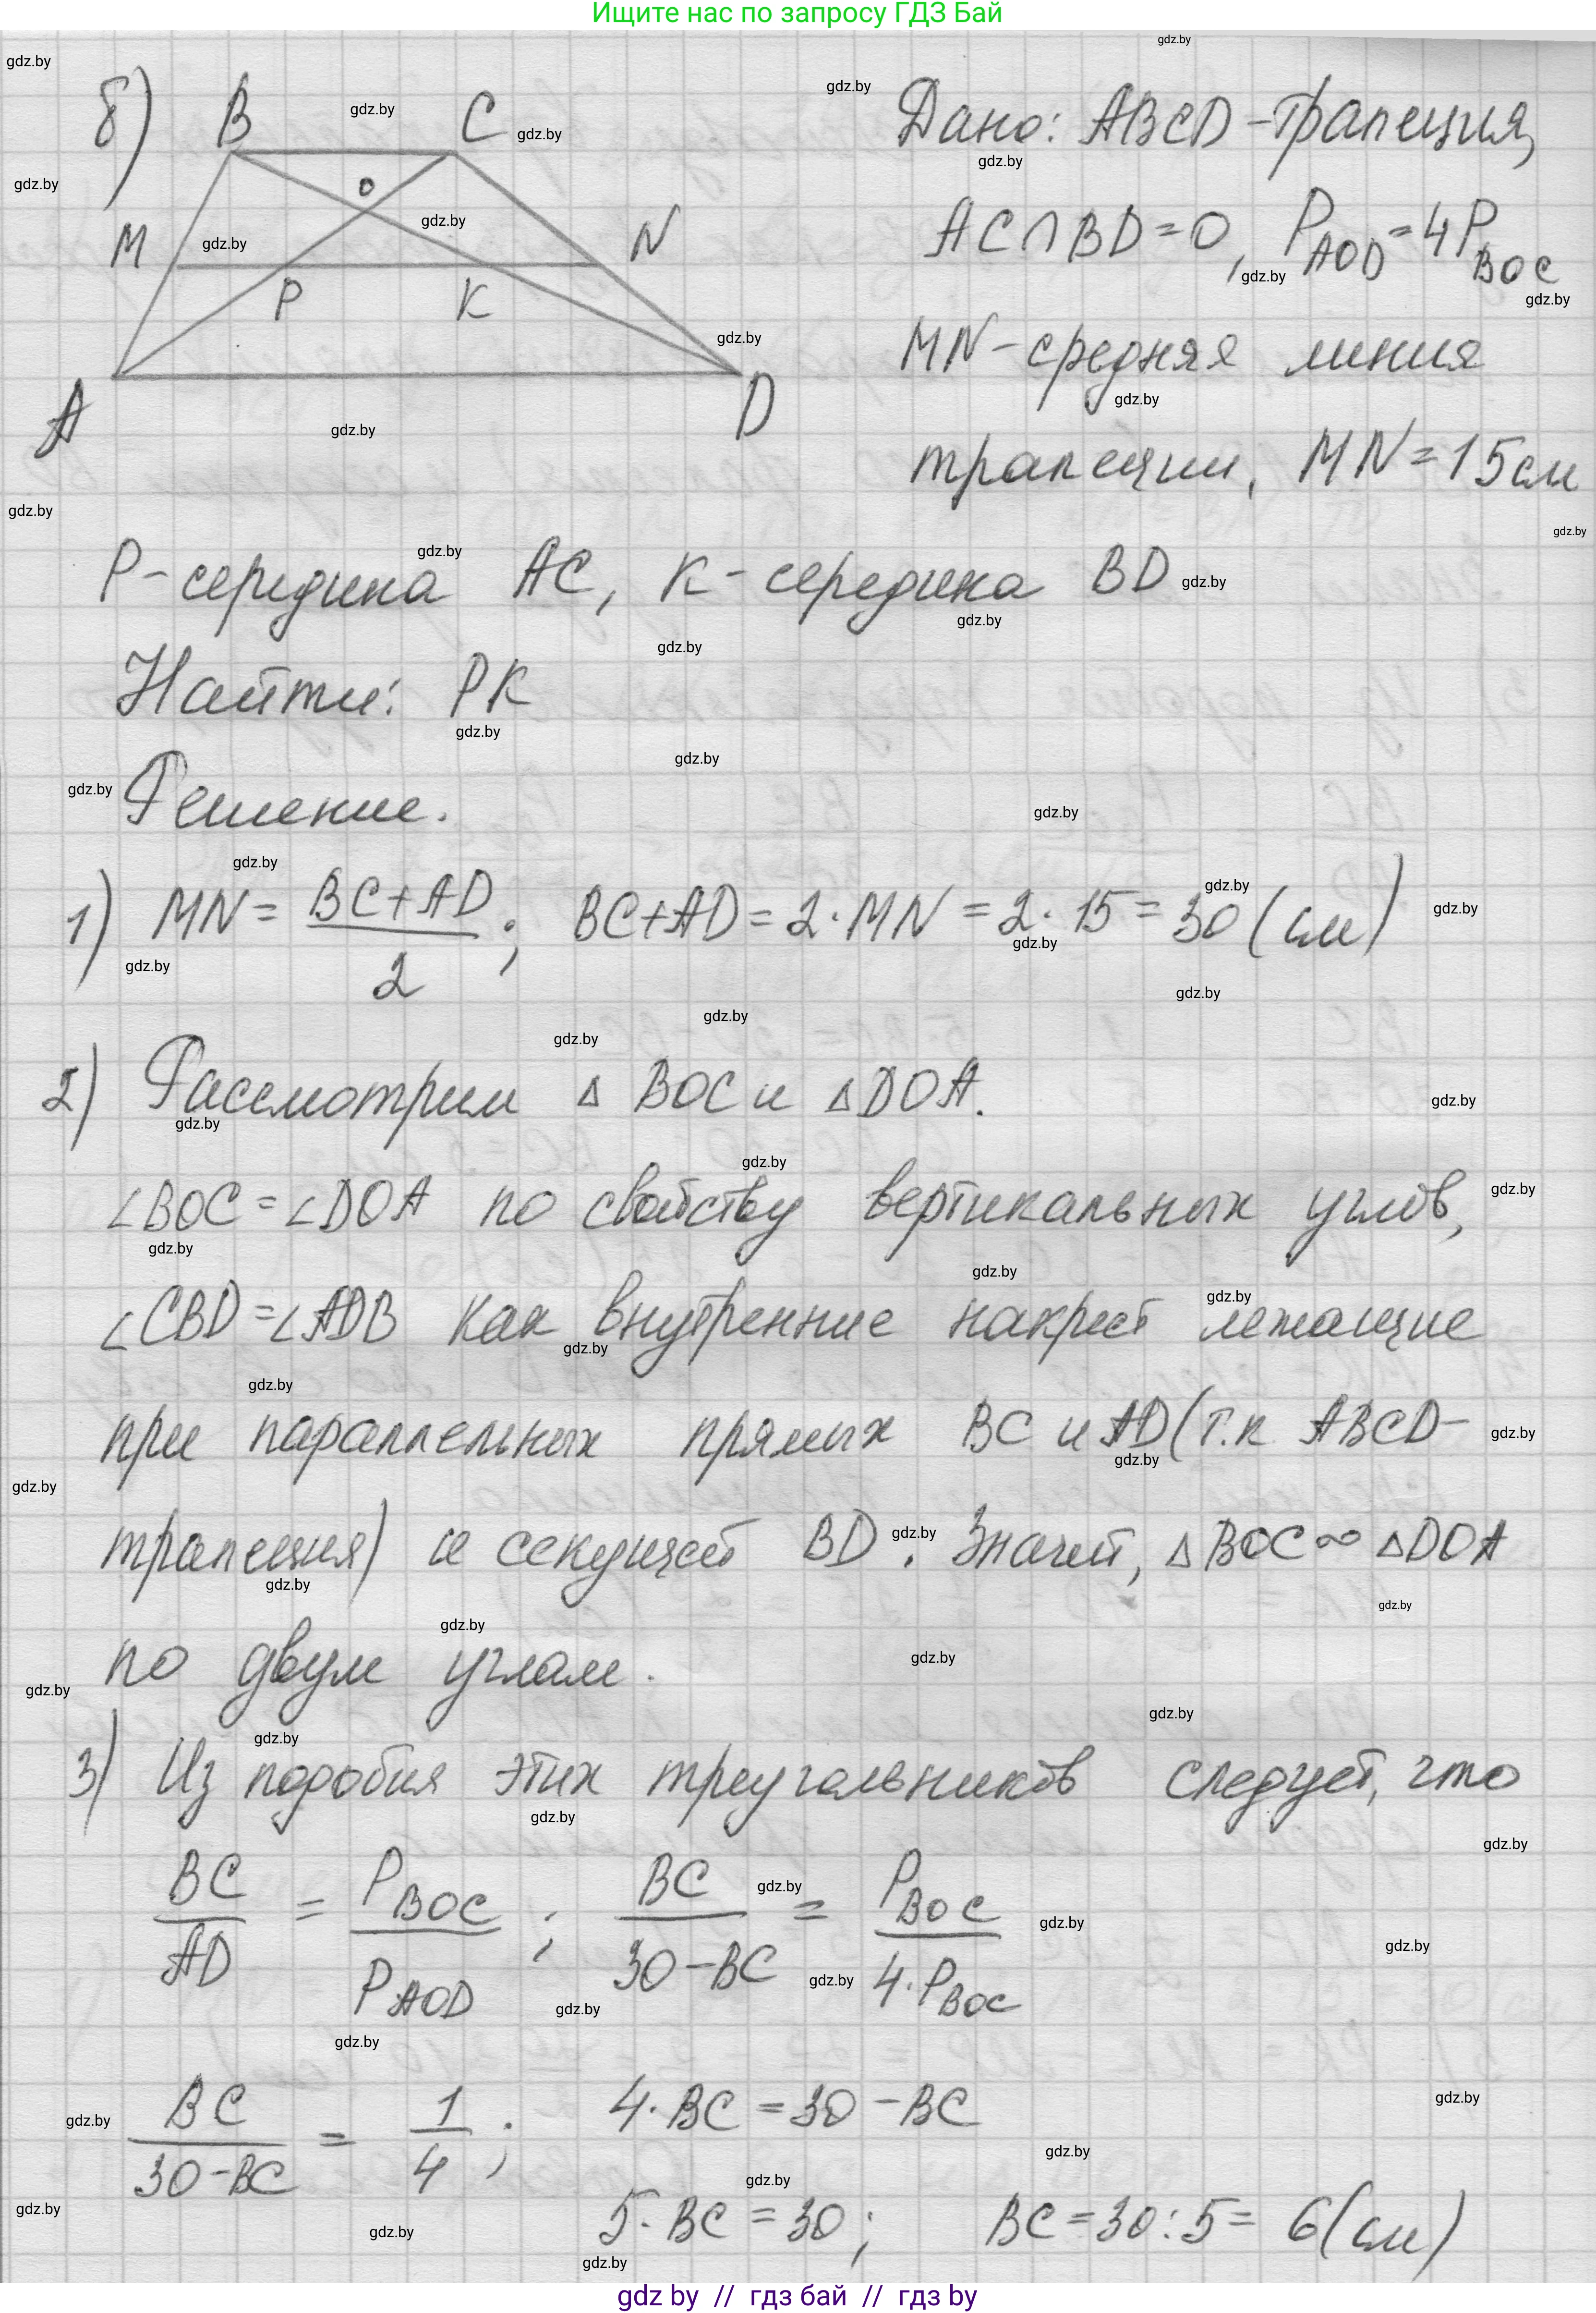 Ищите нас по запросу ГДЗ Бай
б) B C
O
M N
P K
A D
Дано: ABCD-трапеция,
AC∩BD=O, P_AOD=4P_BOC
MN-средняя линия
трапеции, MN=15см
P-середина AC, K-середина BD
Найти: PK
Решение.
1) MN = (BC+AD)/2; BC+AD=2·MN=2·15=30(см)
2) Рассмотрим △BOC и △DOA.
∠BOC=∠DOA по свойству вертикальных углов,
∠CBD=∠ADB как внутренние накрест лежащие
при параллельных прямых BC и AD (т.к ABCD-
трапеция) и секущей BD. Значит, △BOC∞△DOA
по двум углам.
3) Из подобия этих треугольников следует, что
BC/AD = P_BOC/P_AOD; BC/(30-BC) = P_BOC/(4·P_BOC)
BC/(30-BC) = 1/4; 4·BC=30-BC
5·BC=30; BC=30:5=6(см)
gdz by // гдз бай // гдз by